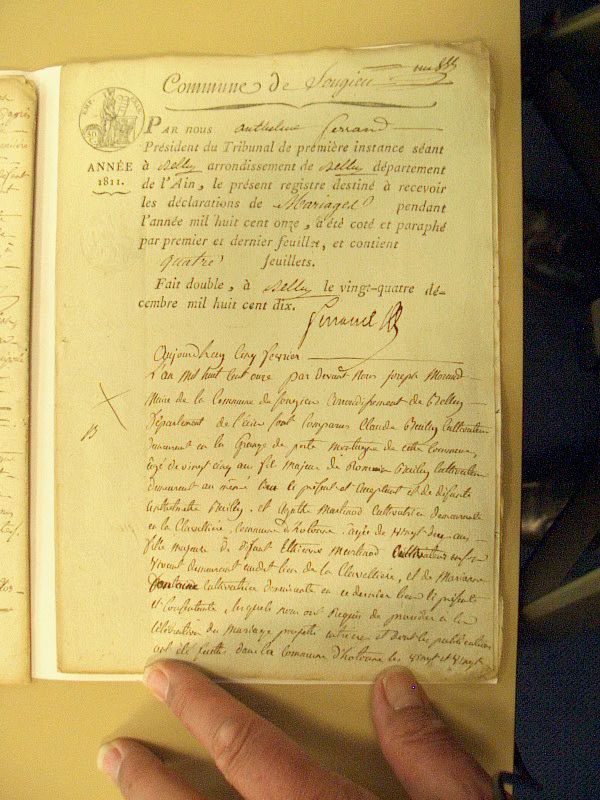 Commune de Songieu
Par nous anthelme Ferrand
Président du Tribunal de première instance séant
ANNÉE
1811.
à Belley arrondissement de Belley département
de l'Ain, le présent registre destiné à recevoir
les déclarations de Mariages pendant
l'année mil huit cent onze, a été coté et paraphé
par premier et dernier feuillet, et contient
quatre feuillets.
Fait double, à Belley le vingt-quatre dé-
cembre mil huit cent dix.
Ferrand
Aujourdhuy Cinq fevrier
L'an mil huit Cent onze par devant Nous joseph Morand
Maire de la Commune de Songieu arrondissement de Belley
Département de l'ain sont Comparus Claude Cultivateur
demeurant en la Grange de porte montagne de cette Commune,
agé de vingt Cinq ans fils majeur de Cultivateur
demeurant au même lieu ci présent et acceptant et de défunte
et agathe Cultivatrice demeurante
en la Clavelliere, Commune d'hotonne, agée de vingt ans
fille majeure de défunt Cultivateur
vivant demeurant audit lieu de la Clavelliere, et de Marianne
Cultivatrice demeurante en ce dernier lieu ci présente
et Consentante, lesquels nous ont Requis de proceder a la
Célébration du Mariage projetté entr'eux et dont les publications
ont été faittes dans la Commune d'hotonne les vingt et vingt